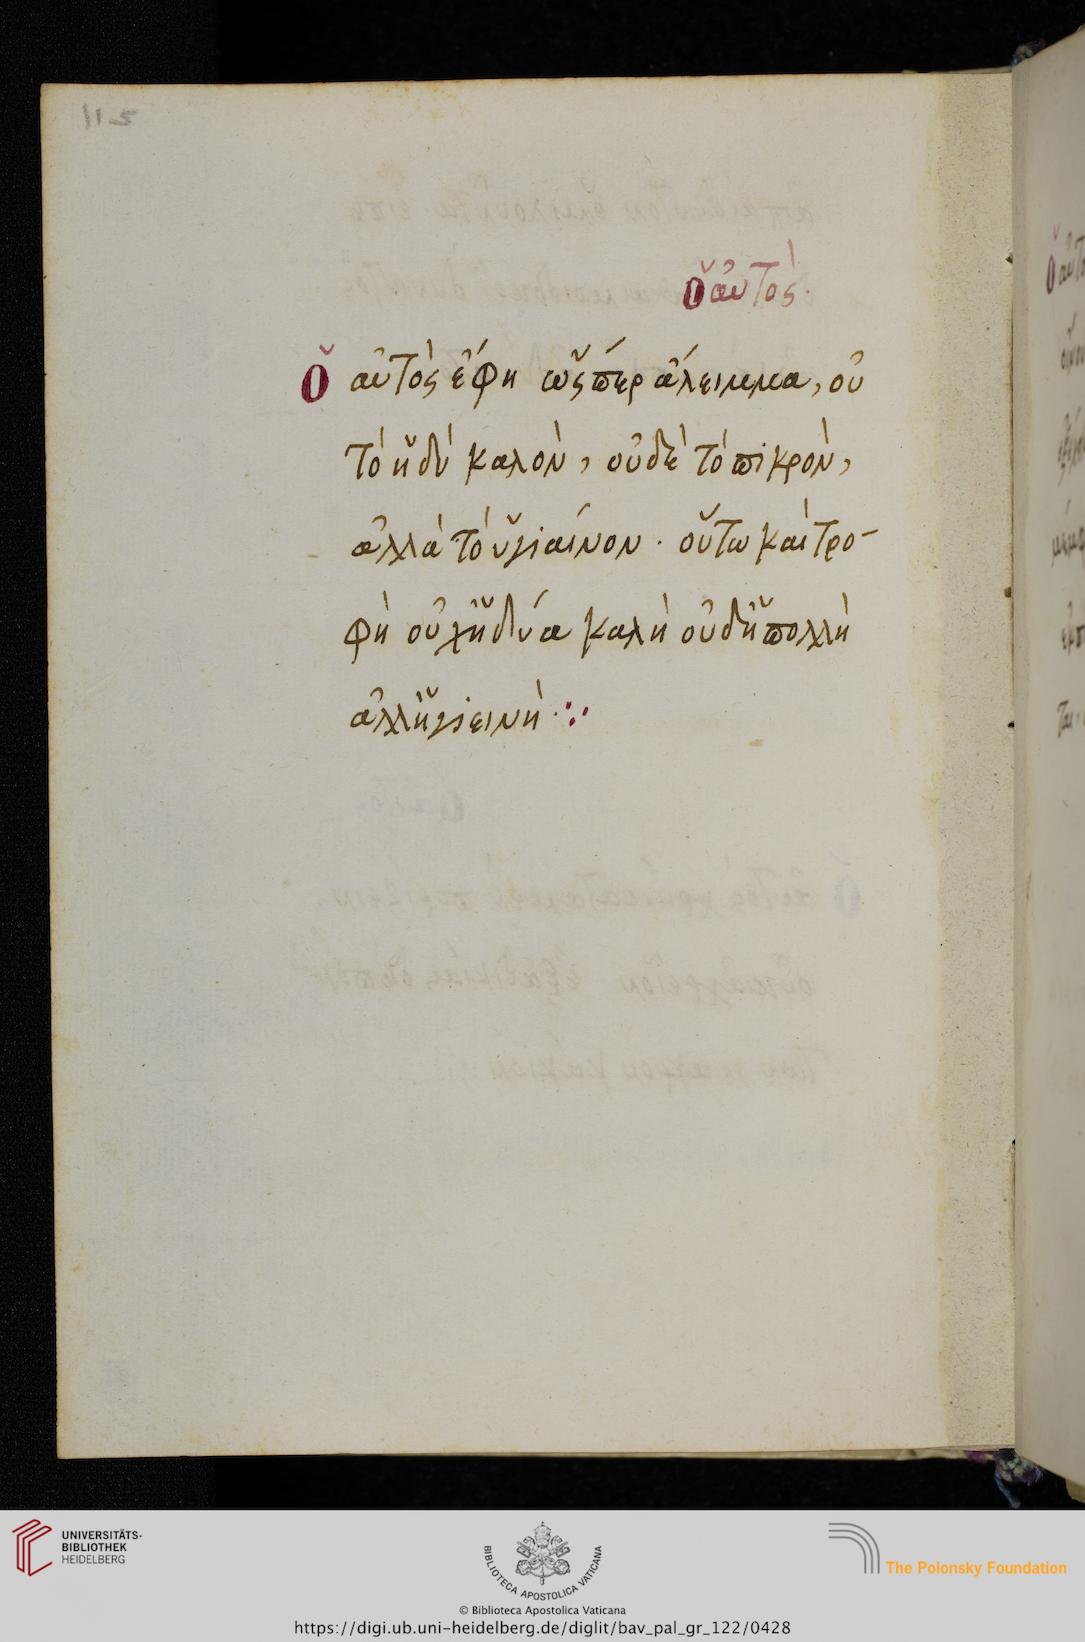 115
Ὁ αὐτὸς.
Ὁ αὐτὸς ἔφη ὥσπερ ἄλειμμα, οὐ
τὸ ἡδὺ καλὸν, οὐδὲ τὸ πικρὸν,
ἀλλὰ τὸ ὑγιαίνον. οὕτω καὶ τρο-
φὴ οὐχ ἡδύα καλὴ οὐδ' ἡ πολλὴ
ἀλλ' ἡ ὑγιεινὴ
UNIVERSITÄTS-
BIBLIOTHEK
HEIDELBERG
BIBLIOTECA APOSTOLICA VATICANA
The Polonsky Foundation
© Biblioteca Apostolica Vaticana
https://digi.ub.uni-heidelberg.de/diglit/bav_pal_gr_122/0428